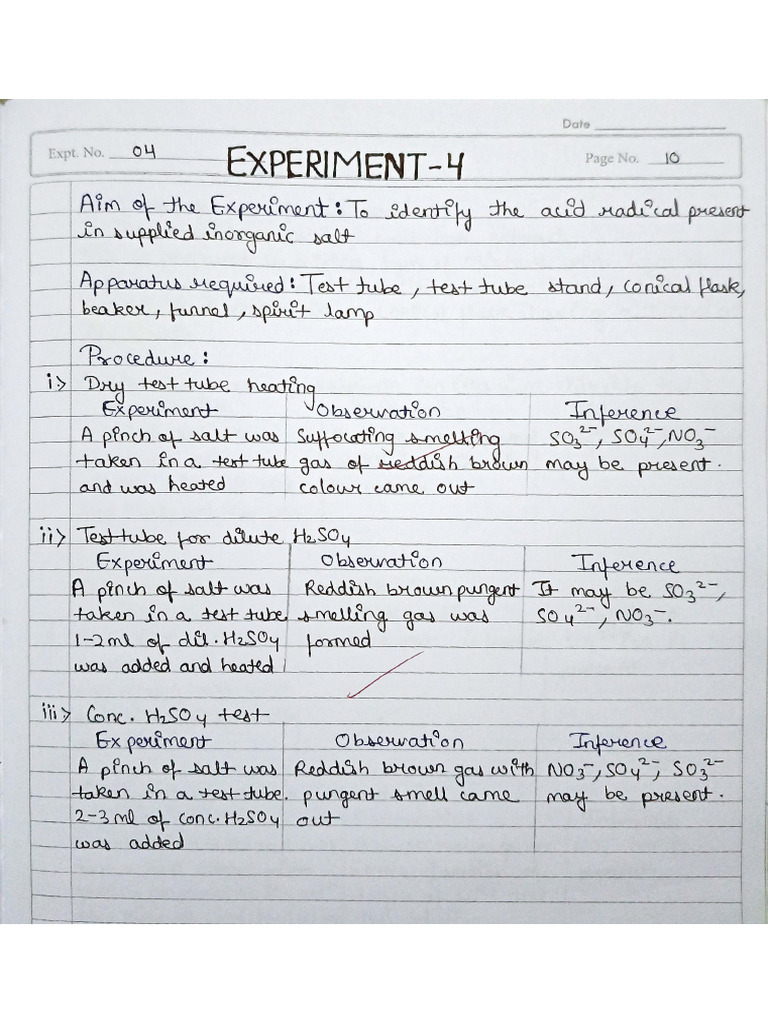 Date
Expt. No. 04
EXPERIMENT-4
Page No. 10
Aim of the Experiment: To identify the acid radical present
in supplied inorganic salt
Apparatus required: Test tube, test tube stand, conical flask,
beaker, funnel, spirit lamp
Procedure:
i> Dry test tube heating
Experiment Observation Inference
A pinch of salt was Suffocating smelling SO₃²⁻, SO₄²⁻, NO₃⁻
taken in a test tube gas of reddish brown may be present.
and was heated colour came out
ii> Test tube for dilute H₂SO₄
Experiment Observation Inference
A pinch of salt was Reddish brown pungent It may be SO₃²⁻,
taken in a test tube smelling gas was SO₄²⁻, NO₃⁻.
1-2ml of dil. H₂SO₄ formed
was added and heated
iii> Conc. H₂SO₄ test
Experiment Observation Inference
A pinch of salt was Reddish brown gas with NO₃⁻, SO₄²⁻, SO₃²⁻
taken in a test tube. pungent smell came may be present.
2-3 ml of conc. H₂SO₄ out
was added